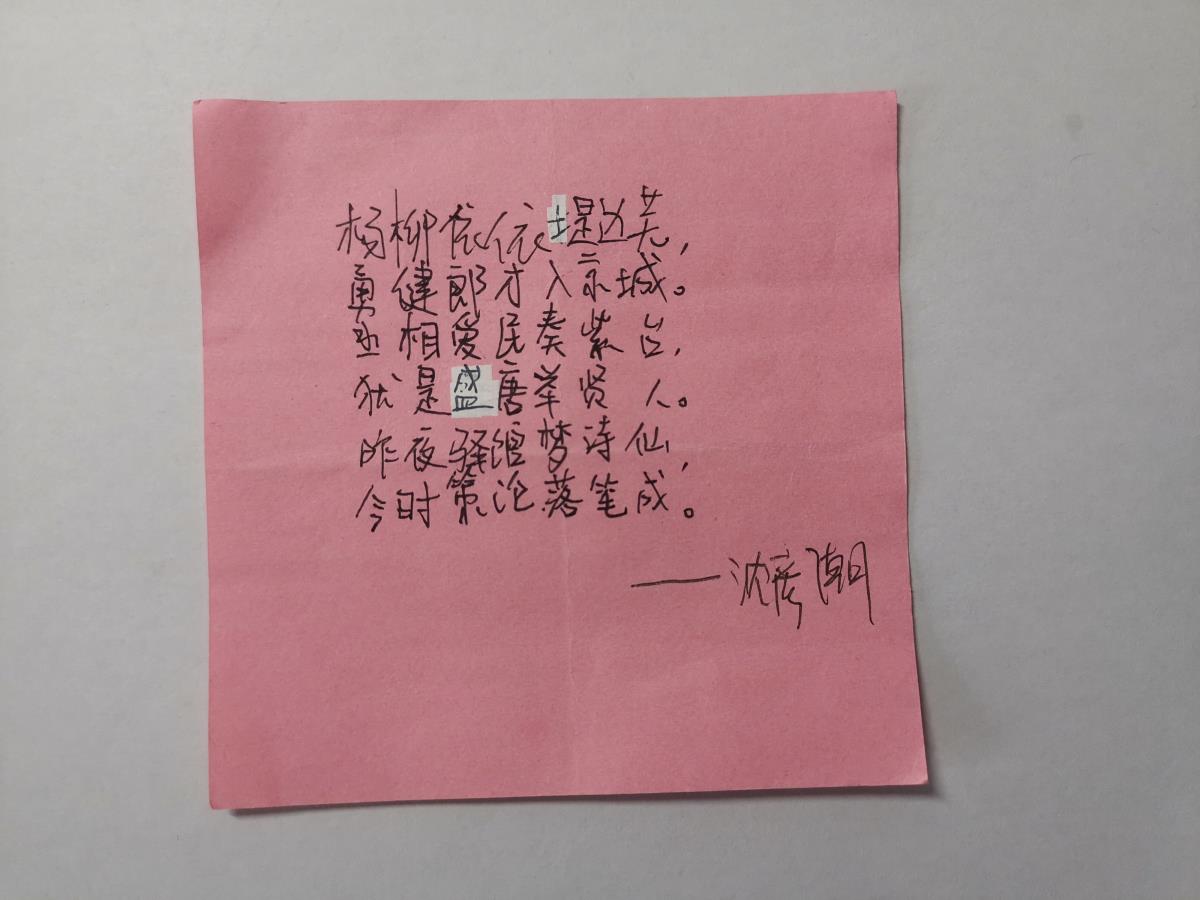 杨柳依依堤边芜,
勇健郎才入京城。
丞相爱民奏紫台,
犹是盛唐举贤人。
昨夜骚馆梦诗仙,
今时策论落笔成。
——沈彦潮